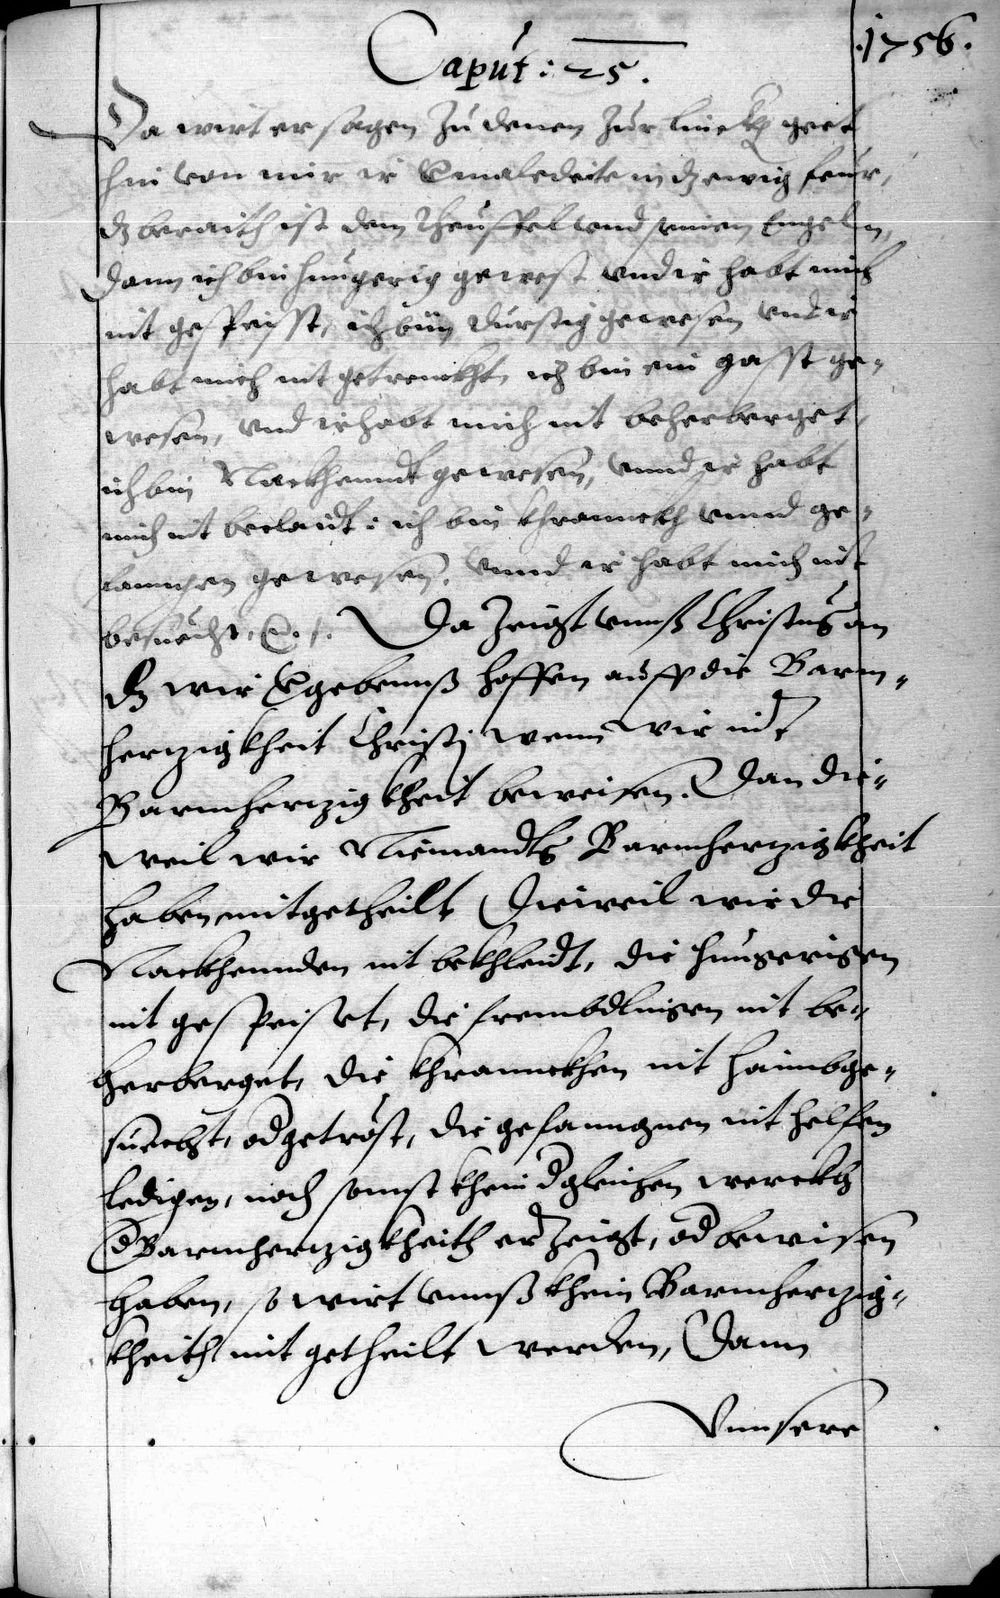 Caput : 25.
.1756.
Da wirt er sagen zu denen zur linckh geet
hin von mir ir Vmaledeite in dz ewig feur,
dz beraith ist dem Theuffel und seinen Engeln,
dann ich bin hungerig gewest und ir habt mich
nit gespeisst, ich bin durstig gewesen und ir
habt mich nit getrenckht, ich bin ein gasst ge-
wesen, und ir habt mich nit beherberget,
ich bin Nackhendt gewesen, unnd ir habt
mich nit beclaidt : ich bin khranckh unnd ge-
fanngen gewesen, unnd ir habt mich nit
besuecht, &.
Da zeigt unnß Christus an
dz wir Vgebenß hoffen auff die Barm-
hertzigkheit Christj wenn wir nit
Barmhertzigkheit beweisen. Dan die-
weil wir Niemandts Barmhertzigkheit
haben mitgetheilt Dieweil wir die
Nackhennden nit bekhleidt, die hungerigen
nit gespeiset, die frembdlingen nit be-
herberget, die khrannckhen nit haimbge-
suecht, od getröst, die gefanngnen nit helfen
ledigen, noch sonst khein dgleichen werckh
d Barmhertzigkheith erzeigt, od bewisen
haben, so wirt unnß khein Barmhertzig-
kheith mit getheilt werden, Dann
Unnsere